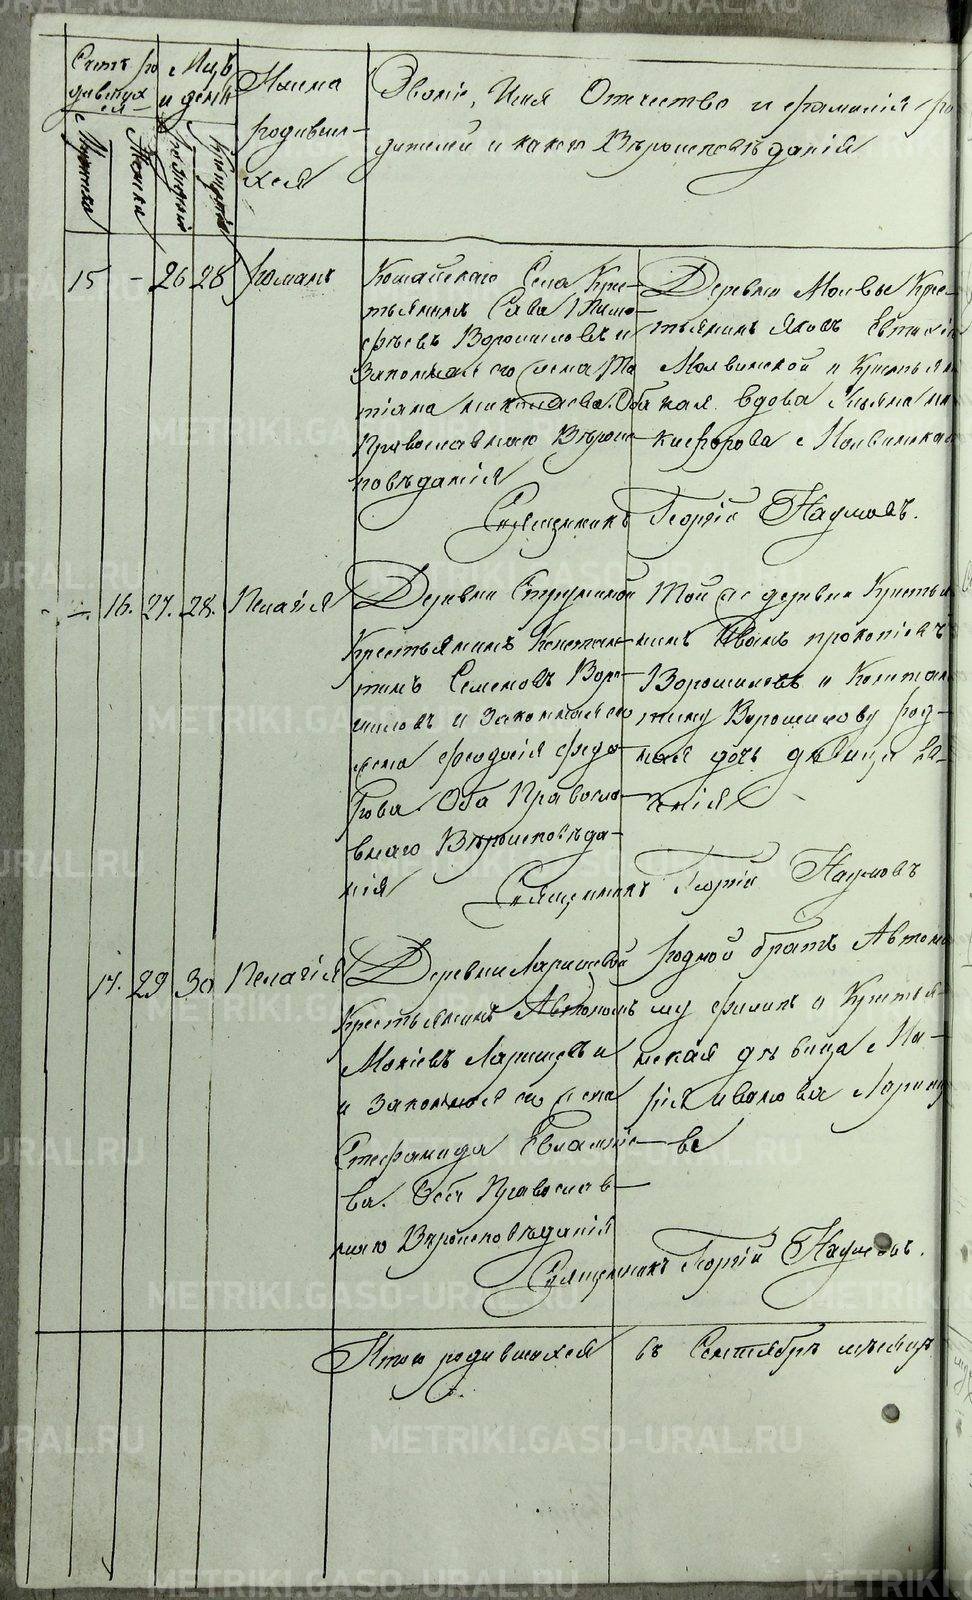 Счетъ ро
дившух
ся
Мужеска
Женска
Мцъ
и день
рожденія
крещенія
Имена
родивших
хся
Званіе, Имя Отчество и фамилія ро
дителей и какого Вѣроисповѣданія
15 - 26 28 Романъ
Села Кре-
стьянинъ Сава Тимо
фѣевъ Ворошиловъ и
Законная его жена Та
тіана Оба
Православнаго Вѣрои-
повѣданія
Деревни Молвы Кре-
стьянинъ Яковъ
Молвинской и Крестьян
кая вдова Ульяна Ни
кифорова Молвинская
Священникъ Георгій Наумовъ.
-. 16. 27. 28. Пелагія
Деревни
Крестьянинъ Констан-
тинъ Семеновъ Воро-
шиловъ и Законная его
жена Феодосія Федо-
рова. Оба Правосла-
внаго Вѣроисповѣда-
нія
Той же деревни Крестья
нинъ Иванъ Прокопіевъ
Ворошиловъ и Констан
тину Ворошилову род-
ная дочь дѣвица Ев-
генія
Священникъ Георгій Наумовъ
17. 29 30 Пелагія
Деревни Ларишевой
Крестьянинъ Автономъ
Мокіевъ Ларишевъ и
и Законная его жена
Стефанида Евлампіе-
ва. Оба Православ-
наго Вѣроисповѣданія
Родной братъ Автоно
му Филипъ и Крестья-
нская дѣвица Ма-
рія Иванова Лариш
ва
Священникъ Георгій Наумовъ.
Итого родившихся въ Сентябрѣ мѣсяцѣ
METRIKI.GASO-URAL.RU